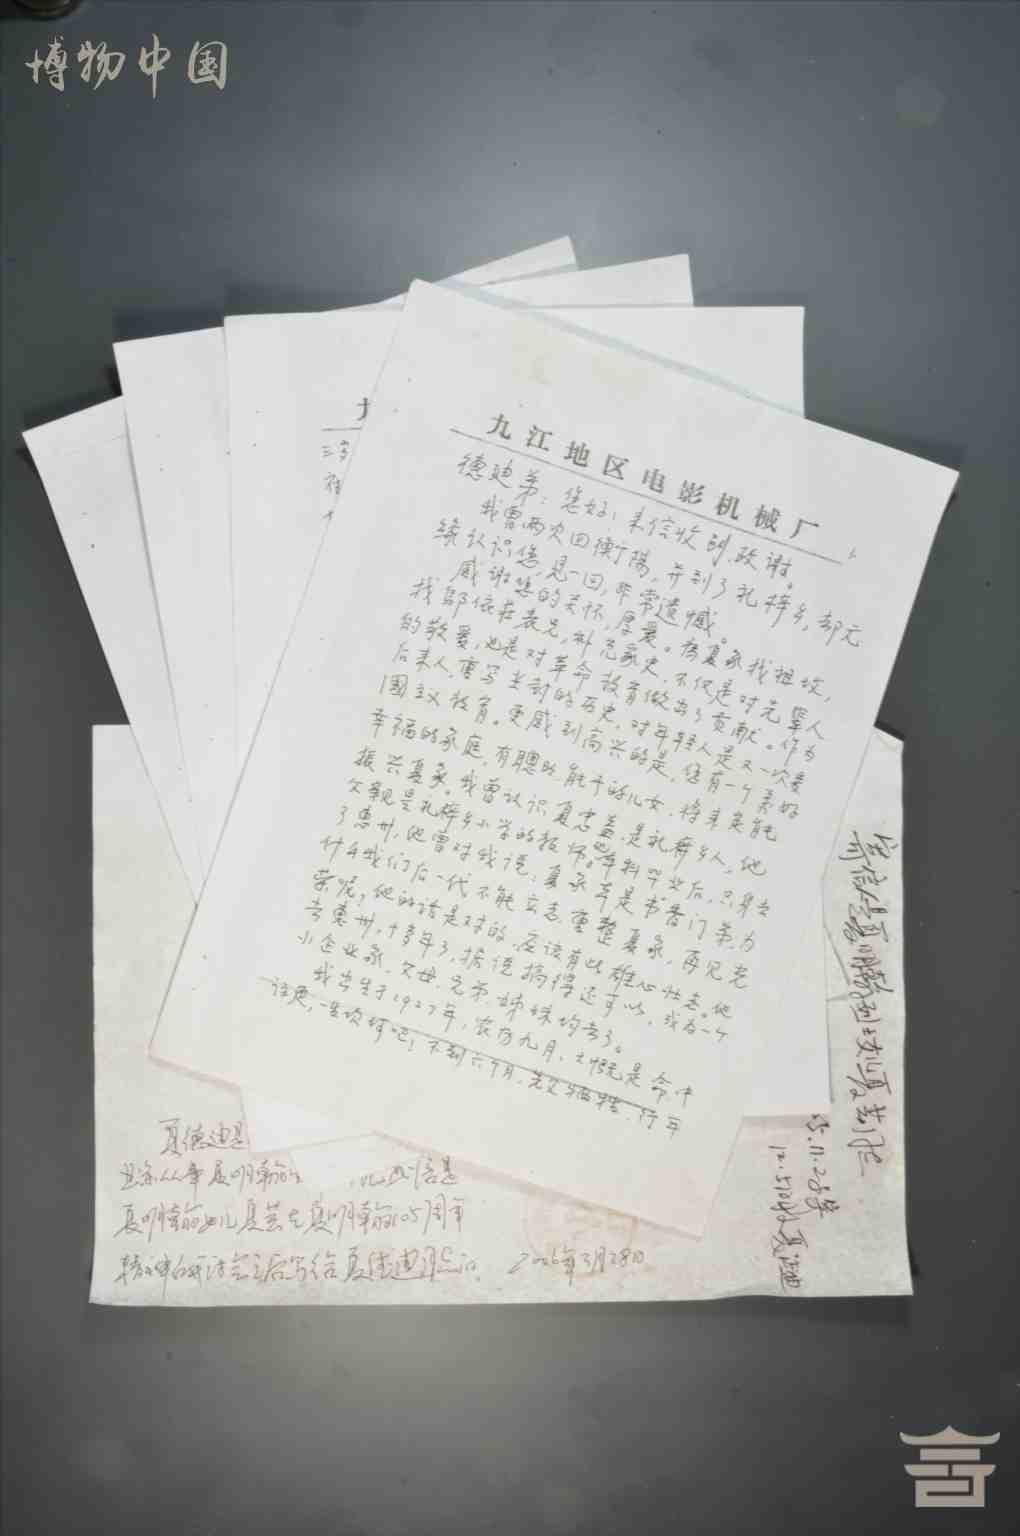 博物中国
九江地区电影机械厂
德迪弟：您好！来信收到，致谢。
我曾两次回衡阳，并到了礼梓乡，却无
缘认识您，见一回，非常遗憾。
感谢您的关怀，厚爱。为夏家找祖坟，
找邬依庄表兄，补充家史，不仅是对先辈人
的敬爱，也是对革命教育做出了贡献。作为
后来人，重写尘封的历史，对年轻人是又一次爱
国主义教育。更感到高兴的是，您有一个美好
幸福的家庭，有聪明能干的儿女，将来定能
振兴夏家。我曾认识夏忠盖，是礼梓乡人，他
父亲是礼梓乡小学的教师。他本科毕业后，只身去
了惠州，他曾对我说：夏家辈是书香门弟，为
什么我们后一代不能立志，重整夏家，再见光
荣呢？他的话是对的，应该有此雄心壮志。他
去惠州，十多年了，据说搞得还可以，成为一个
小企业家，父母、兄弟、姊妹均去了。
我出生于1927年，农历九月，大概是命中
注定，一生坎坷吧！不到六个月，先父牺牲，行年
三岁
夏德迪是
夏明翰
夏明翰女儿夏芸在夏明翰105周年
后写给夏德迪 2006年3月28日